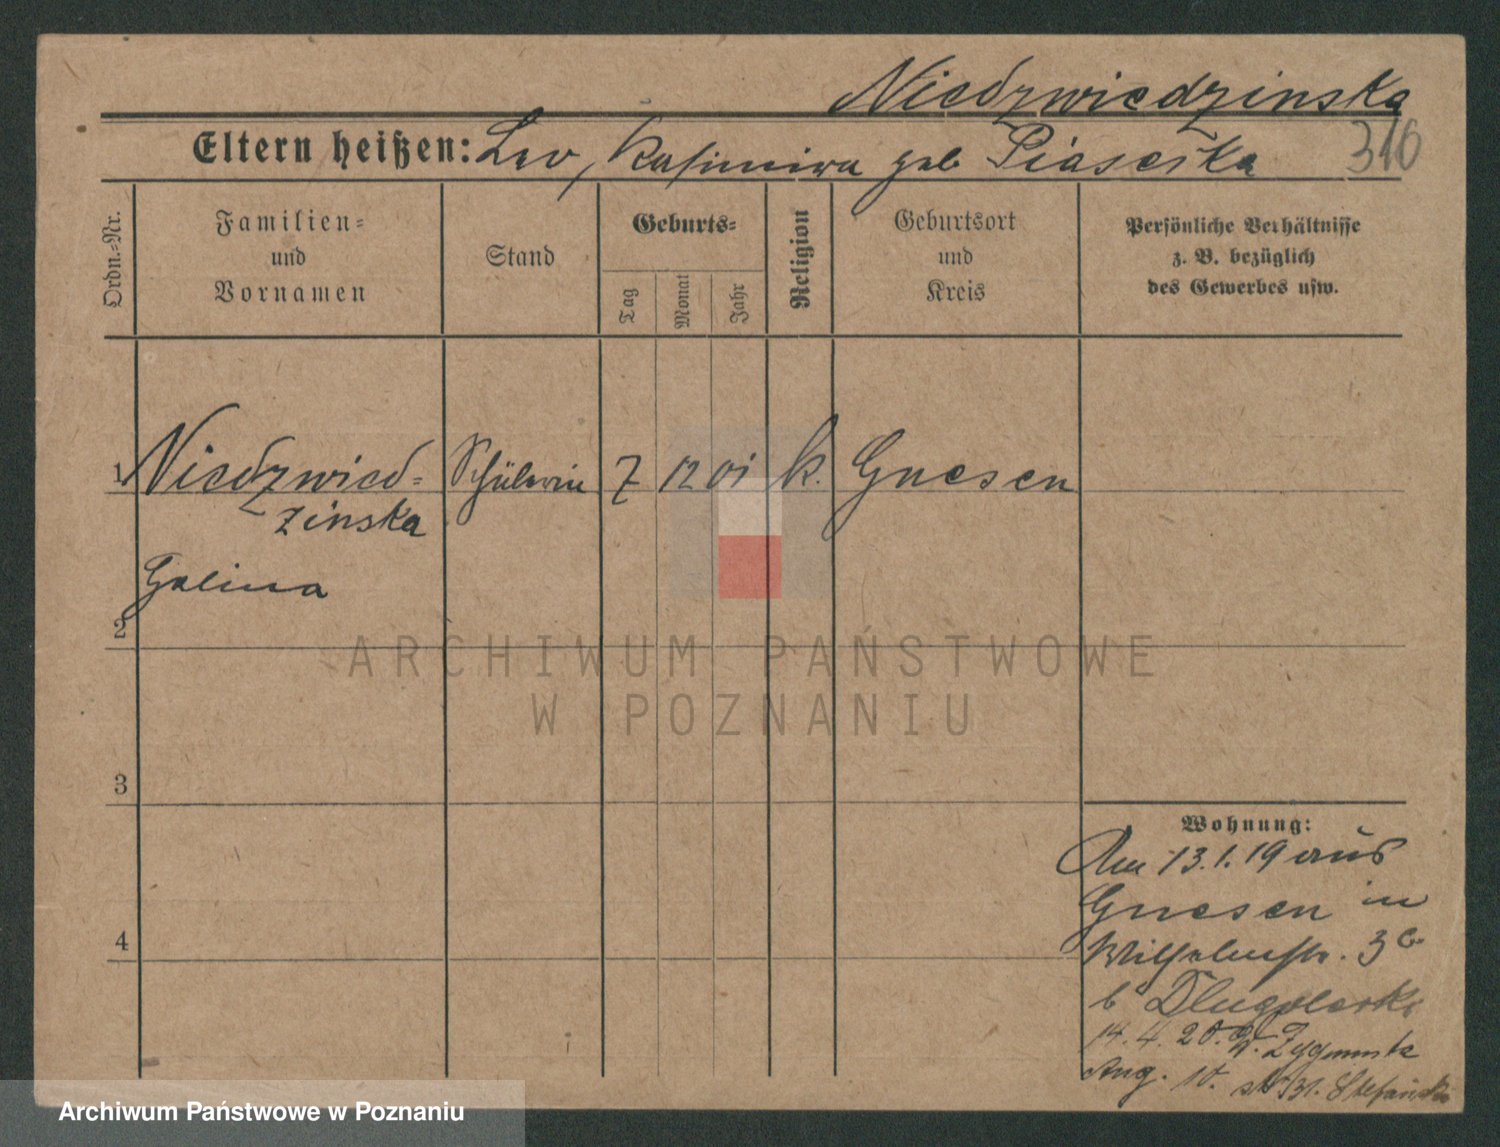 Niedzwiedzinska
Eltern heißen: Leo, Kasimira geb Piasecka
316
Ordn.-Nr.
Familien-
und
Vornamen
Stand
Geburts-
Tag
Monat
Jahr
Religion
Geburtsort
und
Kreis
Persönliche Verhältnisse
z. B. bezüglich
des Gewerbes usw.
1 Niedzwied- Schülerin 7 12 01 k. Gnesen
zinska
Galina
2
ARCHIWUM PAŃSTWOWE
W POZNANIU
3
Wohnung:
Am 13.1.19 aus
Gnesen in
4
Wilhelmstr. 3
b
14. 4. 20.
Aug. 10.
31. Stefański
Archiwum Państwowe w Poznaniu